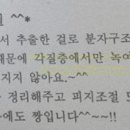 ^^*
서 추출한 걸로 분자구조
때문에 각질층에서만 녹여
지지 않아요.~^^
정리해주고 피지조절
에도 짱입니다^^~~!!